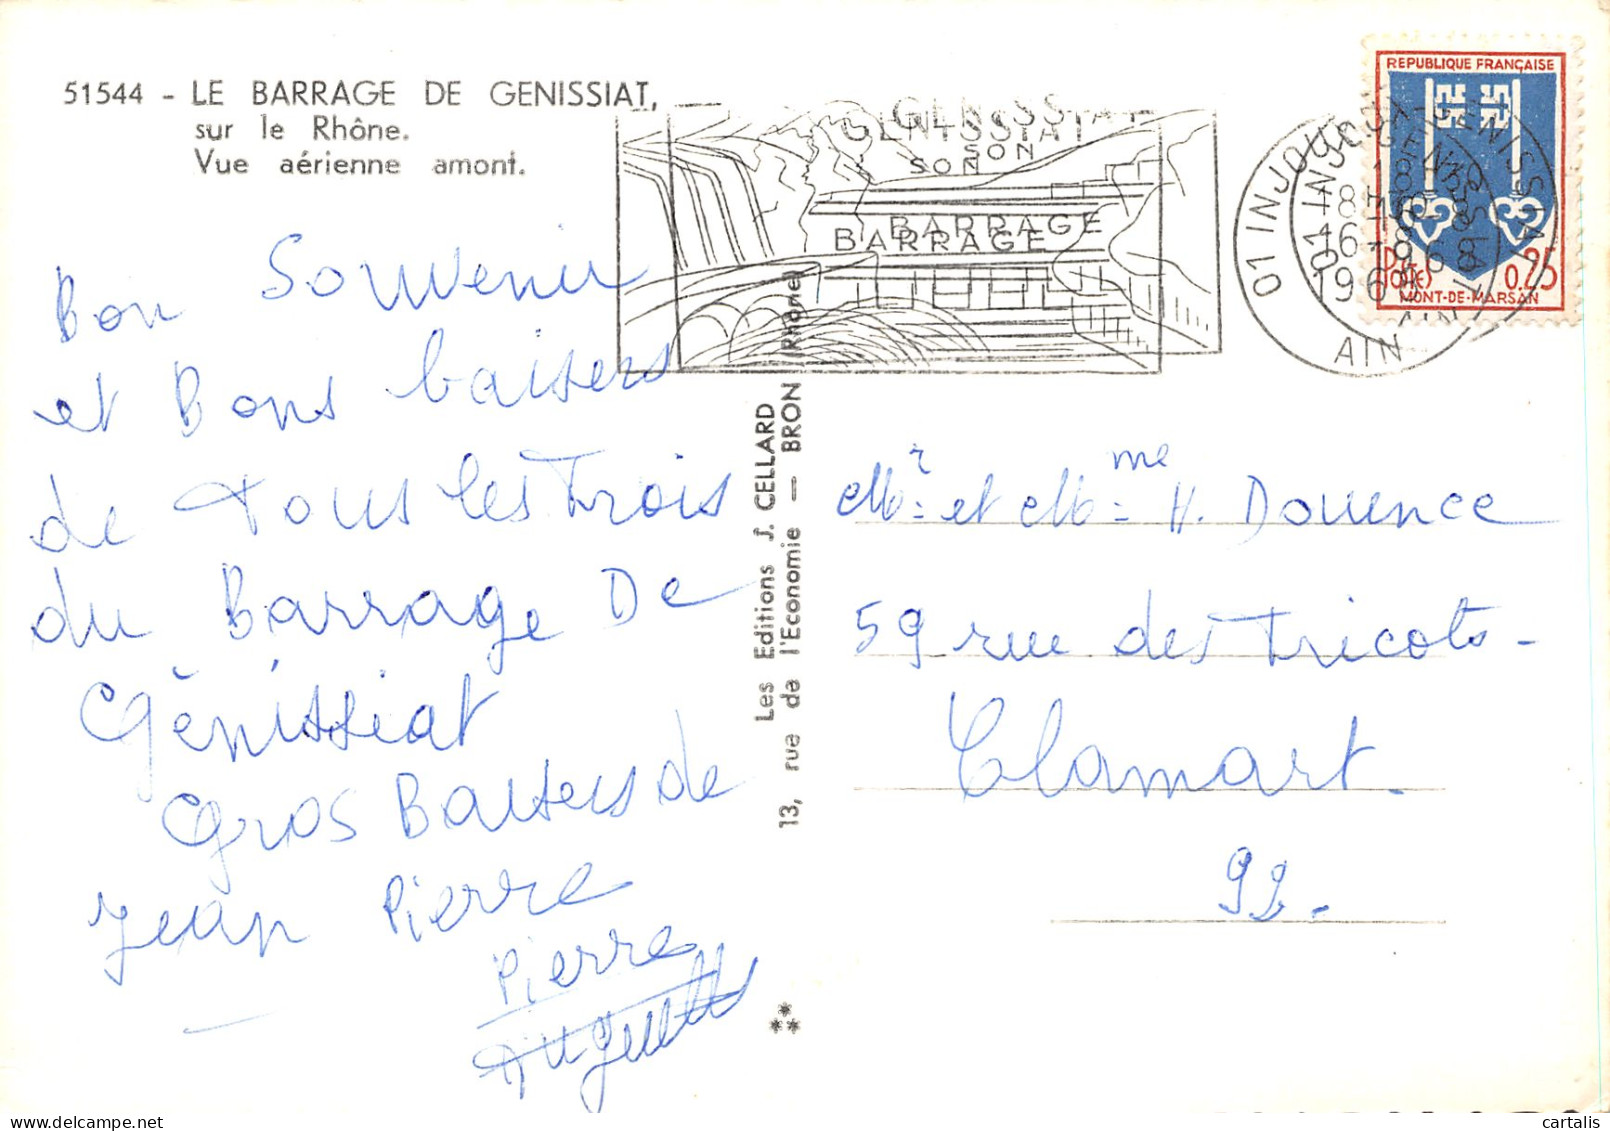 51544 - LE BARRAGE DE GENISSIAT,
sur le Rhône.
Vue aérienne amont.
GENISSIAT
SON
BARRAGE
01 INJOUX-GENISSIAT
18H
16-8
1968
AIN
REPUBLIQUE FRANÇAISE
POSTES
0,25
MONT-DE-MARSAN
Bon Souvenir
et Bons baisers
de tous les Trois
du Barrage De
Génissiat
Gros Baisers de
Jean Pierre
Pierre
Huguette
Les Editions J. CELLARD
13, rue de l'Economie — BRON (Rhône)
Mr et Mme H. Douence
59 rue des Tricots-
Clamart.
92.
cartalis